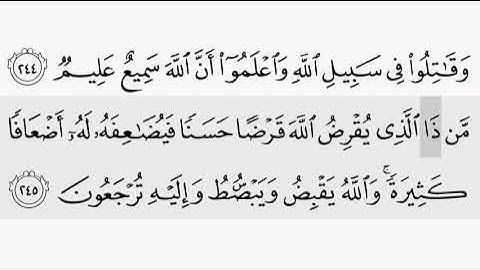 وَقَٰتِلُوا۟ فِى سَبِيلِ ٱللَّهِ وَٱعْلَمُوٓا۟ أَنَّ ٱللَّهَ سَمِيعٌ عَلِيمٌ ٢٤٤
مَّن ذَا ٱلَّذِى يُقْرِضُ ٱللَّهَ قَرْضًا حَسَنًا فَيُضَٰعِفَهُۥ لَهُۥٓ أَضْعَافًا
كَثِيرَةً ۚ وَٱللَّهُ يَقْبِضُ وَيَبْصُۜطُ وَإِلَيْهِ تُرْجَعُونَ ٢٤٥